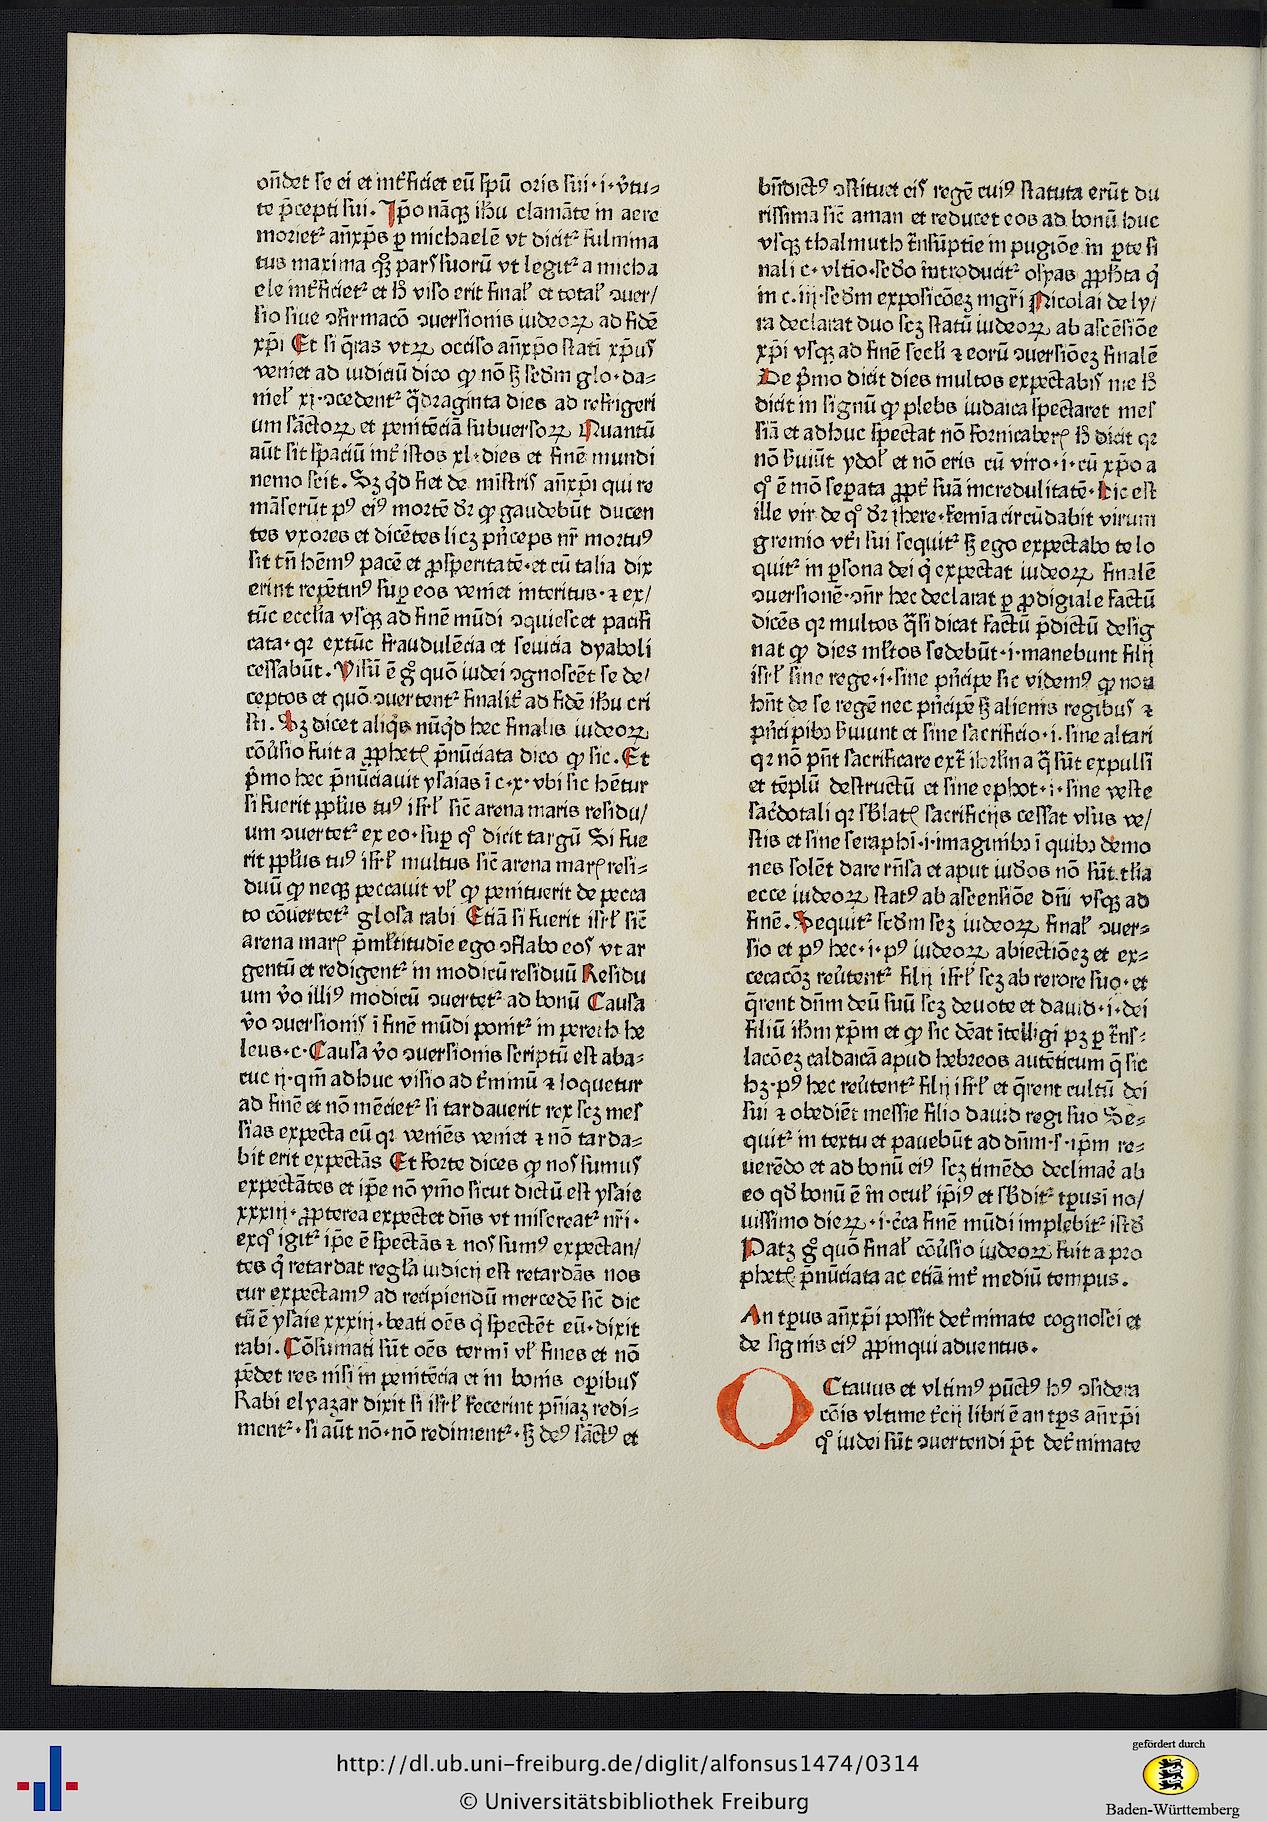 on̄det se ei et int̄ficiet eū spū oris sui·i·v̄tu⸗
te p̄cepti sui. Ip̄o nāqꝫ ihū clamāte in aere
moriet᷑ an̄xp̄s ꝑ michaelē vt dicit᷑ fulmina
tus maxima qꝫ pars suorū vt legit᷑ a micha
ele int̄ficiet᷑ et hͦ viso erit finaƚ et totaƚ ꝯuer/
sio siue ꝯfirmacō ꝯuersionis iudeoꝝ ad fidē
xp̄i Et si q̄ras vtꝝ occiso an̄xp̄o stati xp̄us
veniet ad iudiciū dico ꝙ nō sꝫ sed̄m glo·da⸗
nieƚ xij·ꝯcedent᷑ q̄draginta dies ad refrigeri
um sāctoꝝ et penitēciā subuersoꝝ Quantū
aūt sit spaciū int̄ istos xl·dies et finē mundi
nemo scit. Sꝫ qͥd fiet de mīstris an̄xp̄i qui re
māserūt pꝰ eiꝰ mortē dr̄ ꝙ gaudebūt ducen
tes vxores et dicētes licꝫ pn̄ceps nr̄ mortuꝰ
sit tn̄ hēmꝰ pacē et ꝓsperitatē·et cū talia dix
erint repētinꝰ suꝑ eos veniet interitus·⁊ ex/
tūc ecclīa vsqꝫ ad finē mūdi ꝯquiescet pacifi
cata·qꝛ extūc fraudulēcia et seuicia dyaboli
cessabūt. Visū ē gͦ quō iudei ꝯgnoscēt se de/
ceptos et quō ꝯuertent᷑ finalit̄ ad fidē ihū cri
sti. Sꝫ dicet aliqͥs nūqͥd hec finalis iudeoꝝ
cōūsio fuit a ꝓphetꝭ p̄nūciata dico ꝙ sic. Et
pͥmo hec p̄nūciauit ysaias ī c·x· vbi sic hētur
si fuerit ppl̄us tuꝰ isrl̄ sic̄ arena maris residu/
um ꝯuertet᷑ ex eo·suꝑ qͦ dicit targū Si fue
rit ppl̄us tuꝰ isrl̄ multus sic̄ arena marꝭ resi⸗
duū ꝙ neqꝫ peccauit vƚ ꝙ penituerit de pecca
to cōuertet᷑ glosa rabi Etiā si fuerit isrl̄ sic̄
arena marꝭ p̄mƚtitudīe ego ꝯflabo eos vt ar
gentū et redigent᷑ in modicū residuū Residu
um v̄o illiꝰ modicū ꝯuertet᷑ ad bonū Causa
v̄o ꝯuersionis ī finē mūdi ponit᷑ in perech he
leus·c·Causa v̄o ꝯuersionis scriptū est aba⸗
cuc ij·qm̄ adhuc visio ad t̄minū ⁊ loquetur
ad finē et nō mēciet᷑ si tardauerit rex scꝫ mes
sias expecta eū qꝛ veniēs veniet ⁊ nō tarda⸗
bit erit expectās Et forte dices ꝙ nos sumus
expectātes et ip̄e nō ymo sicut dictū est ysaie
xxxiij·ꝓpterea expectet dn̄s vt misereat᷑ nr̄i·
exqͦ igit᷑ ip̄e ē spectās ⁊ nos sumꝰ expectan/
tes qͥ retardat regl̄a iudicij est retardās nos
cur expectamꝰ ad recipiendū mercedē sic̄ dic
tū ē ysaie xxxiij·beati oēs qͥ spectēt eū·dixit
rabi. Cōsumati sūt oēs termī vƚ fines et nō
pēdet res nisi in penitēcia et in bonis oꝑibus
Rabi elyazar dixit si isrl̄ fecerint pn̄iaꝫ redi⸗
ment᷑·si aūt nō·nō rediment᷑·sꝫ deꝰ sāctꝰ et
bn̄dictꝰ ꝯstituet eis regē cuiꝰ statuta erūt du
rissima sic̄ aman et reducet eos ad bonū huc
vsqꝫ thalmuth t̄nsūptīe in pugiōe in ꝑte fi
nali c·vltīo·sed̄o introducit᷑ osyas ꝓph̄ta qͥ
in c.iij·sed̄m exposicōeꝫ mgr̄i Nicolai de ly/
ra declarat duo scꝫ statū iudeoꝝ ab ascēsiōe
xp̄i vsqꝫ ad finē secl̄i ⁊ eorū ꝯuersiōeꝫ finalē
De pͥmo dicit dies multos expectabis me hͦ
dicit in signū ꝙ plebs iudaica spectaret mes
siā et adhuc spectat nō fornicaberꝭ hͦ dicit qꝛ
nō s̄uiūt ydoƚ et nō eris cū viro·i·cū xp̄o a
qͦ ē mō seꝑata ꝓpt̄ suā incredulitatē·hic est
ille vir de qͦ dr̄ ihere·femīa circūdabit virum
gremio vt̄i sui sequit᷑ sꝫ ego expectabo te lo
quit᷑ in ꝑsona dei qͥ expectat iudeoꝝ finalē
ꝯuersionē·ꝯn̄r hec declarat ꝑ ꝓdigiale factū
dicēs qꝛ multos q̄si dicat factū p̄dictū desig
nat ꝙ dies mƚtos sedebūt·i·manebunt filij
isrl̄ sine rege·i·sine pn̄cipe sic videmꝰ ꝙ non
hn̄t de se regē nec pn̄cipē sꝫ alienis regibus ⁊
pn̄cipibꝫ s̄uiunt et sine sacrificio·i·sine altari
qꝛ nō pn̄t sacrificare ext̄ ihrl̄m a q̄ sūt expulsi
et tēplū destructū et sine ephot·i·sine veste
sac̄dotali qꝛ sb̄latꝭ sacrificijs cessat vsus ve/
stis et sine seraphī·i·imagīnibꝫ ī quibꝫ demo
nes solēt dare rn̄sa et aput iud̄os nō sūt·tl̄ia
ecce iudeoꝝ statꝰ ab ascensiōe dn̄i vsqꝫ ad
finē. Sequit᷑ sed̄m scꝫ iudeoꝝ finaƚ ꝯuer⸗
sio et pꝰ hec·i·pꝰ iudeoꝝ abiectiōeꝫ et ex⸗
cecacōꝫ reūtent᷑ filij isrl̄ scꝫ ab rerore suo·et
q̄rent dn̄m deū suū scꝫ deuote et dauid·i·dei
filiū ihm̄ xp̄m et ꝙ sic dēat ītelligi pꝫ ꝑ t̄ns⸗
lacōeꝫ caldaicā apud hebreos autēticum q̄ sic
hꝫ·pꝰ hec reūtent᷑ filij isrl̄ et q̄rent cultū dei
sui ⁊ obediēt messie filio dauid regi suo Se⸗
quit᷑ in textu et pauebūt ad dn̄m·s·ip̄m re⸗
uerēdo et ad bonū eiꝰ scꝫ timēdo declinar̄ ab
eo qd̄ bonū ē in ocuƚ ip̄iꝰ et sb̄dit᷑ tp̄usī no/
uissimo dieꝝ·i·c̄ca finē mūdi implebit᷑ istd̄
Patꝫ gͦ quō finaƚ cōūsio iudeoꝝ fuit a pro
phetꝭ p̄nūciata ac etiā int̄ mediū tempus.
An tp̄us an̄xp̄i possit det̄minate cognosci et
de signis eiꝰ ꝓpinqui aduentus.
OCtauus et vltimꝰ pūctꝰ hꝰ ꝯsidera
cōis vltime t̄cij libri ē an tp̄s an̄xp̄i
qͦ iudei sūt ꝯuertendi p̄t det̄minate
http://dl.ub.uni-freiburg.de/diglit/alfonsus1474/0314
© Universitätsbibliothek Freiburg
gefördert durch
Baden-Württemberg